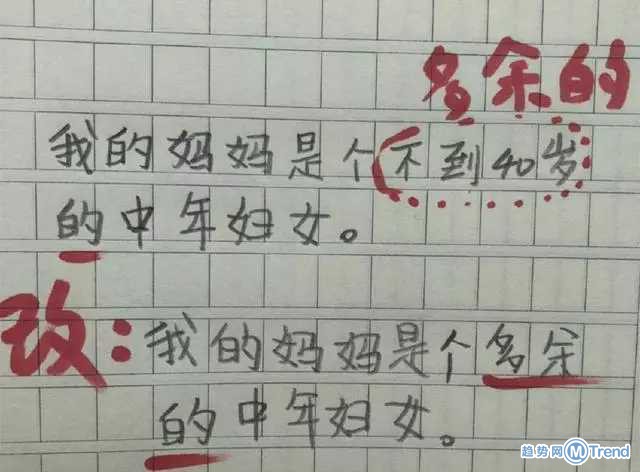 多余的
我的妈妈是个(不到40岁
的中年妇女。
改:我的妈妈是个多余
的中年妇女。
趋势网 M Trend